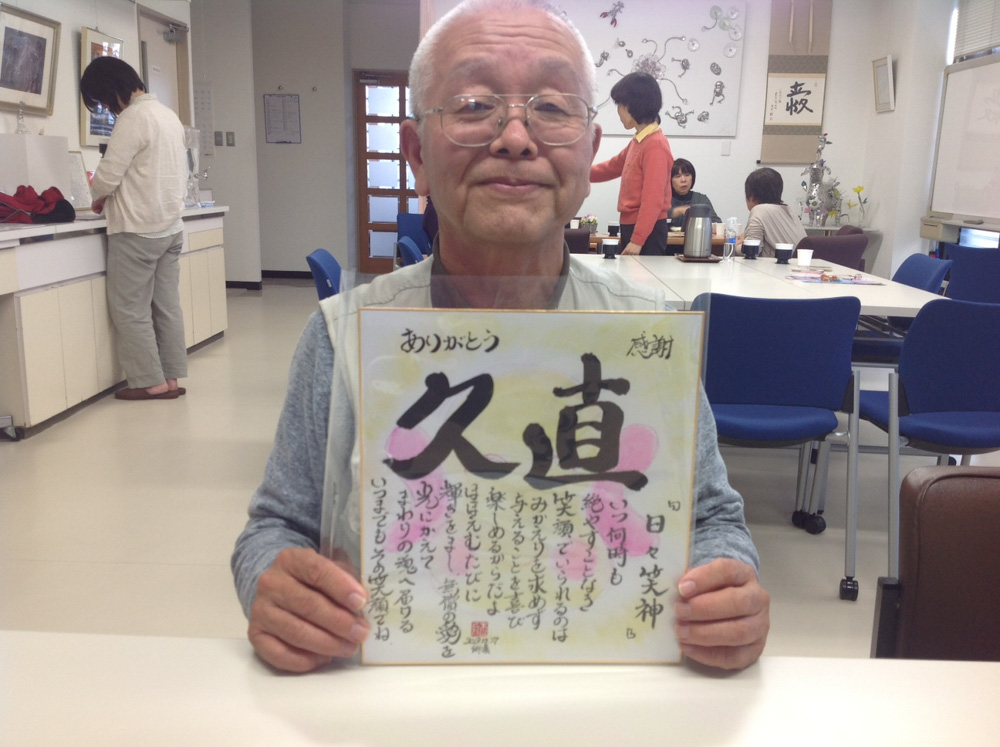 感謝
ありがとう
直久
「日々笑神」
いつ何時も
絶やすことなき
笑顔でいられるのは
みかえりを求めず
与えることを喜び
楽しめるからだよ
ほほえむたびに
輝きをまし 無償の愛を
光にかえて
まわりの魂へ届ける
いつまでもその笑顔でね